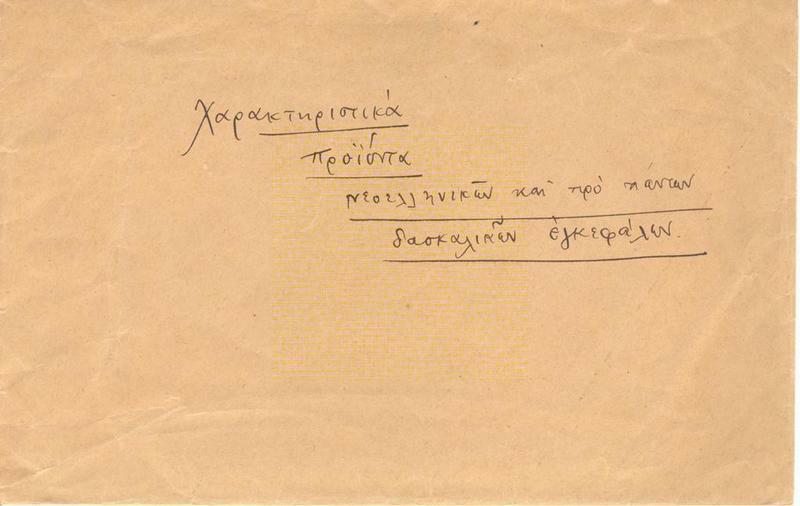 Χαρακτηριστικά
προϊόντα
νεοελληνικῶν καὶ πρὸ πάντων
δασκαλικῶν ἐγκεφάλων.